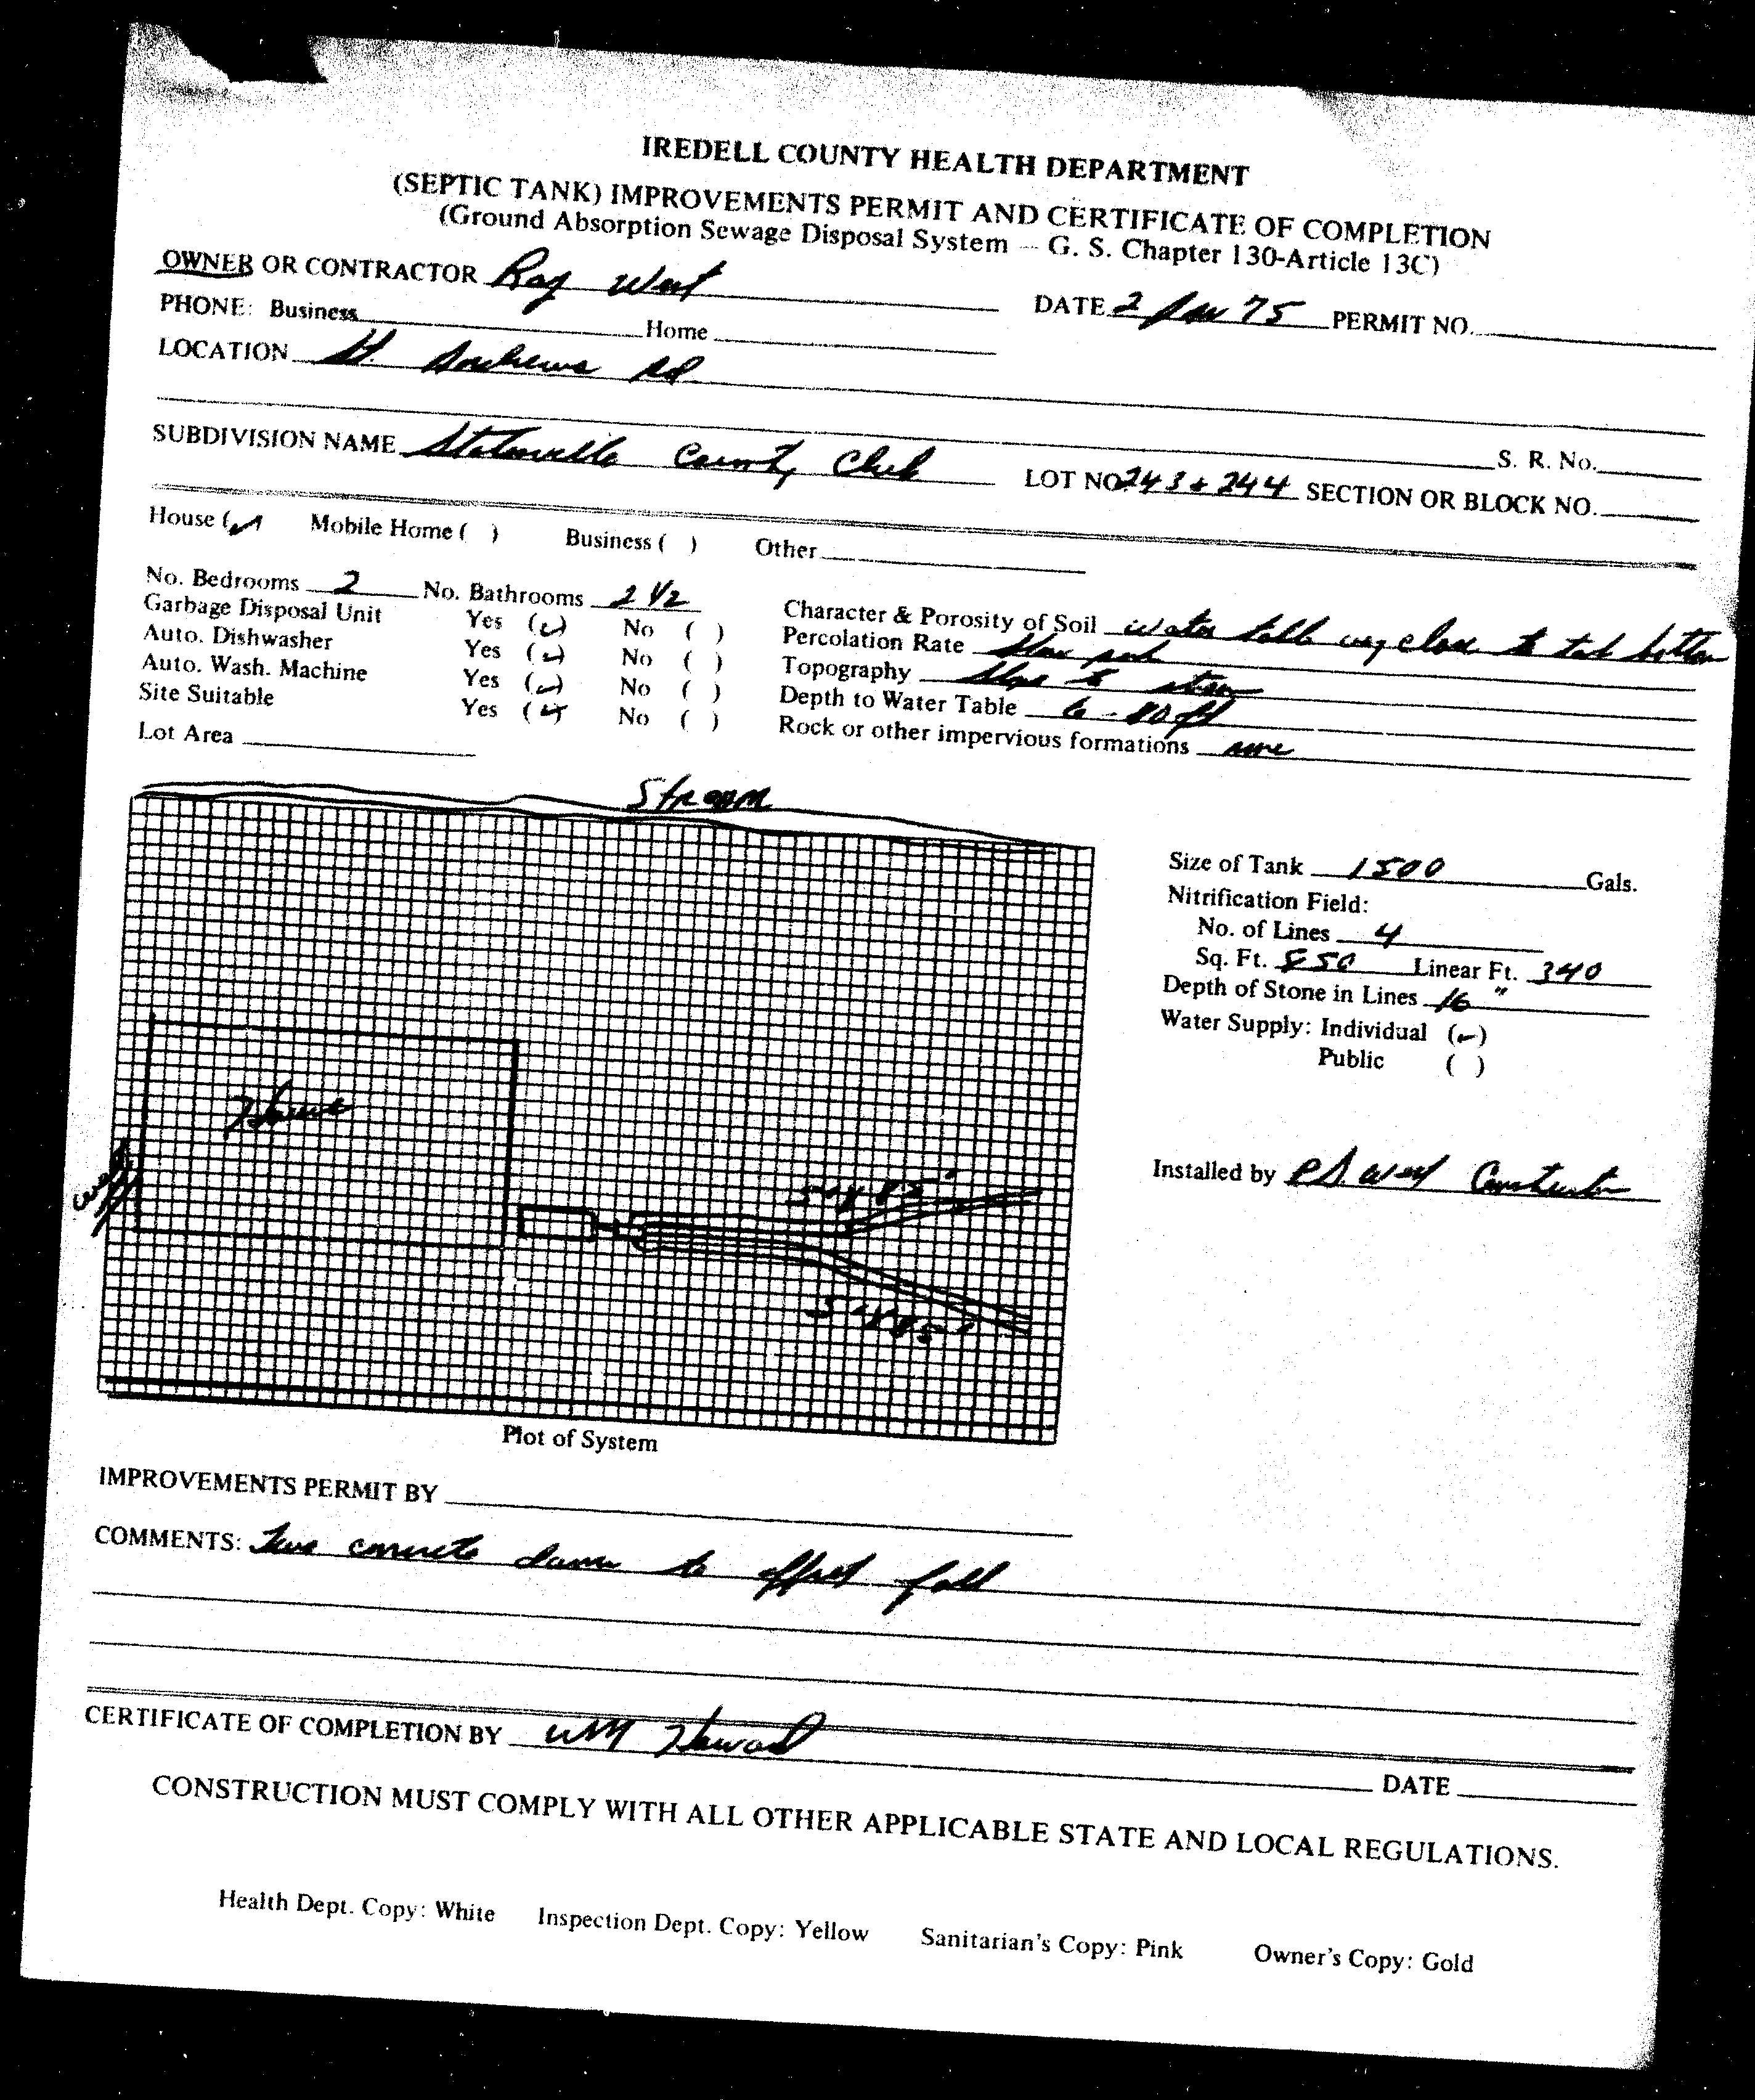 IREDELL COUNTY HEALTH DEPARTMENT
(SEPTIC TANK) IMPROVEMENTS PERMIT AND CERTIFICATE OF COMPLETION
(Ground Absorption Sewage Disposal System — G. S. Chapter 130-Article 13C)
OWNER OR CONTRACTOR Ray West DATE 2 75 PERMIT NO.
PHONE: Business Home
LOCATION Andrews Rd
S. R. No.
SUBDIVISION NAME Statesville Country Club LOT NO. 243 + 244 SECTION OR BLOCK NO.
House (✓) Mobile Home ( ) Business ( ) Other
No. Bedrooms 2 No. Bathrooms 2 1/2
Garbage Disposal Unit Yes (✓) No ( )
Auto. Dishwasher Yes (✓) No ( )
Auto. Wash. Machine Yes (✓) No ( )
Site Suitable Yes (✓) No ( )
Lot Area
Character & Porosity of Soil water table very close to bottom
Percolation Rate
Topography Slope to stream
Depth to Water Table ft
Rock or other impervious formations none
Stream
House
Well
5'X85'
5'X85'
Plot of System
Size of Tank 1500 Gals.
Nitrification Field:
No. of Lines 4
Sq. Ft. 850 Linear Ft. 340
Depth of Stone in Lines 16"
Water Supply: Individual (✓)
Public ( )
Installed by West Construction
IMPROVEMENTS PERMIT BY
COMMENTS: concrete dams to offset fall
CERTIFICATE OF COMPLETION BY WM Howard DATE
CONSTRUCTION MUST COMPLY WITH ALL OTHER APPLICABLE STATE AND LOCAL REGULATIONS.
Health Dept. Copy: White Inspection Dept. Copy: Yellow Sanitarian's Copy: Pink Owner's Copy: Gold